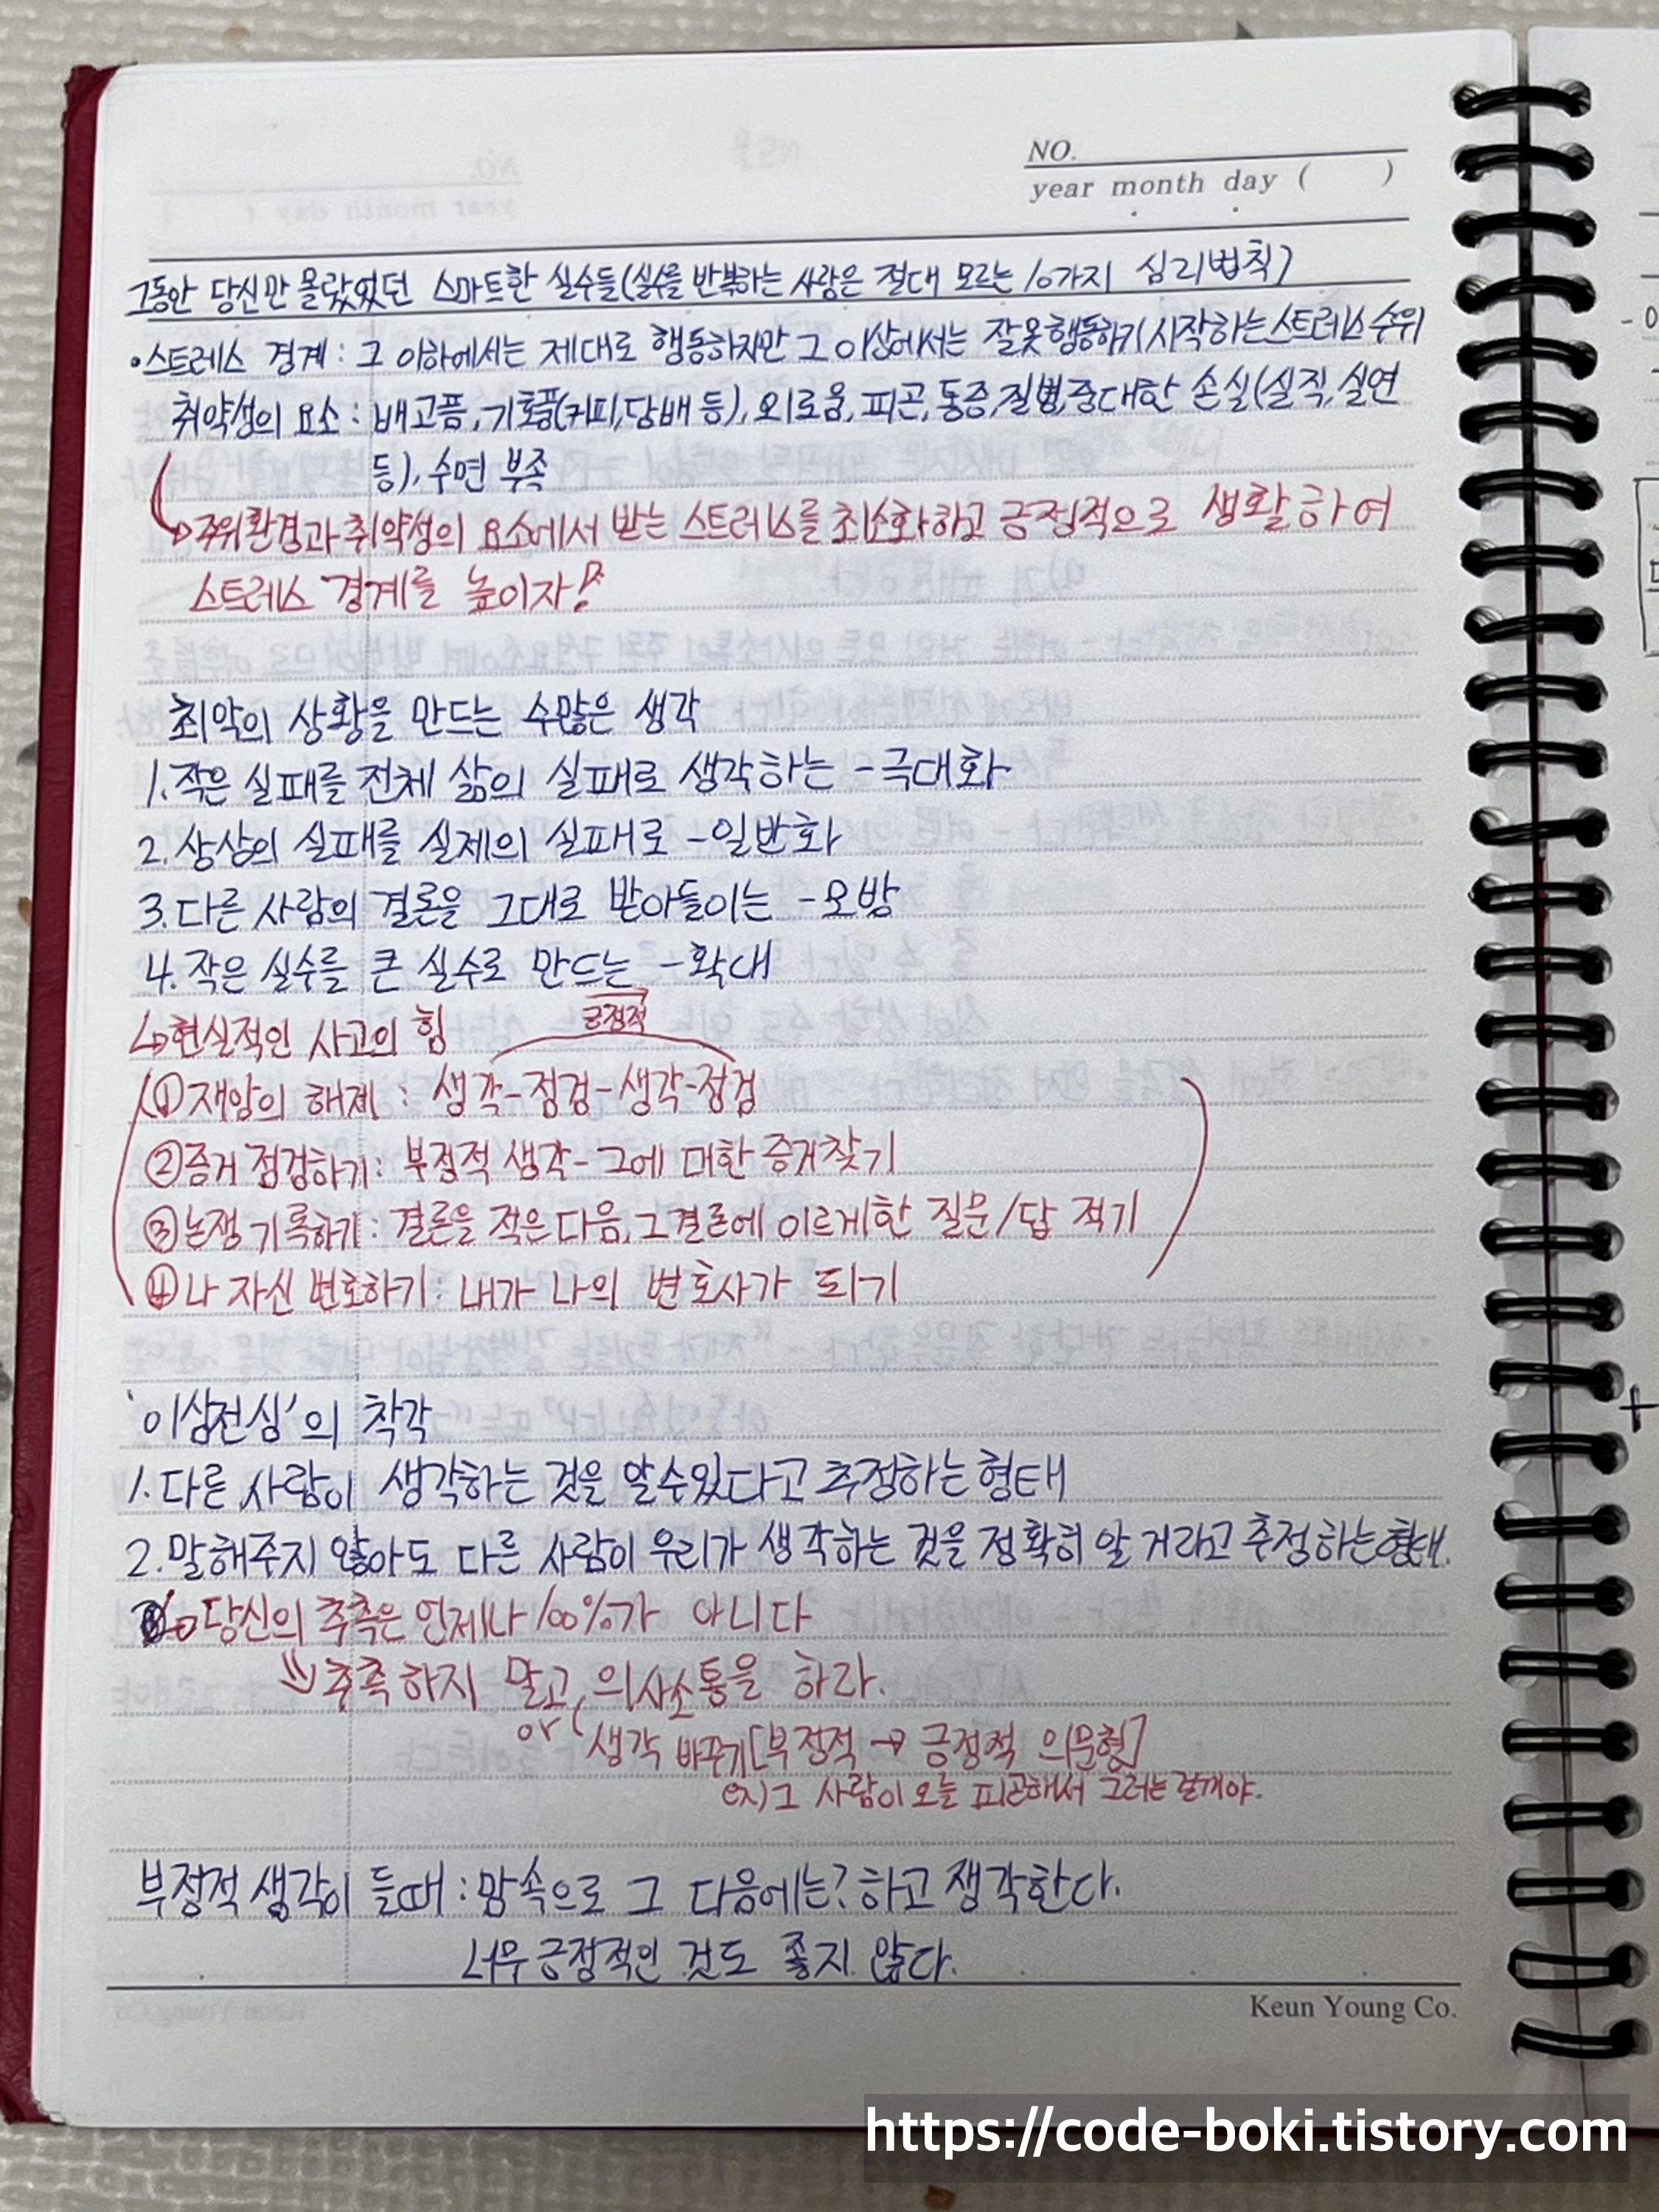 NO.
year month day ( )
그동안 당신만 몰랐었던 스마트한 실수들(실수를 반복하는 사람은 절대 모르는 10가지 심리법칙)
• 스트레스 경계 : 그 이하에서는 제대로 행동하지만 그 이상에서는 잘못 행동하기 시작하는 스트레스 수위
취약성의 요소 : 배고픔, 기호품(커피,담배 등), 외로움, 피곤, 통증, 질병, 중대한 손실(실직, 실연
등), 수면 부족
→ 주위환경과 취약성의 요소에서 받는 스트레스를 최소화하고 긍정적으로 생활하여
스트레스 경계를 높이자!
최악의 상황을 만드는 수많은 생각
1. 작은 실패를 전체 삶의 실패로 생각하는 - 극대화
2. 상상의 실패를 실제의 실패로 - 일반화
3. 다른 사람의 결론을 그대로 받아들이는 - 모방
4. 작은 실수를 큰 실수로 만드는 - 확대
↳ 현실적인 사고의 힘
긍정적
① 재앙의 해제 : 생각-점검-생각-점검
② 증거 점검하기 : 부정적 생각 - 그에 대한 증거찾기
③ 논쟁 기록하기 : 결론을 적은 다음, 그 결론에 이르게한 질문/답 적기
④ 나 자신 변호하기 : 내가 나의 변호사가 되기
'이심전심'의 착각
1. 다른 사람이 생각하는 것을 알수있다고 추정하는 형태
2. 말해주지 않아도 다른 사람이 우리가 생각하는 것을 정확히 알 거라고 추정하는 형태.
→ 당신의 추측은 언제나 100%가 아니다
⇒ 추측하지 말고, 의사소통을 하라.
or 생각 바꾸기[부정적 → 긍정적 의문형]
ex) 그 사람이 오늘 피곤해서 그러는 걸꺼야.
부정적 생각이 들때 : 맘속으로 그 다음에는? 하고 생각한다.
너무 긍정적인 것도 좋지 않다.
Keun Young Co.
https://code-boki.tistory.com